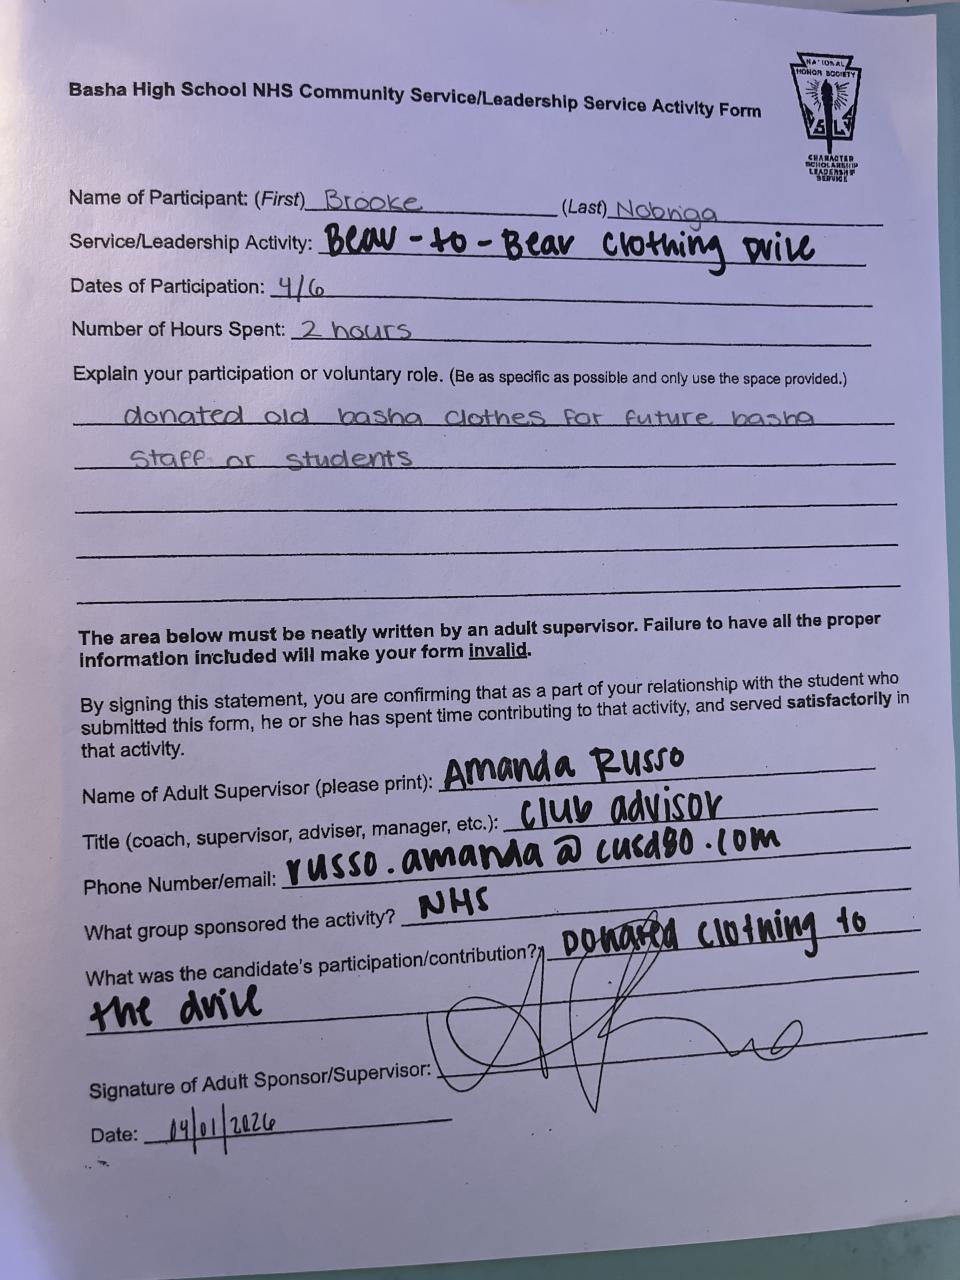 Basha High School NHS Community Service/Leadership Service Activity Form
NATIONAL
HONOR SOCIETY
S L
CHARACTER
SCHOLARSHIP
LEADERSHIP
SERVICE
Name of Participant: (First) Brooke (Last) Nobriga
Service/Leadership Activity: Bear-to-Bear Clothing Drive
Dates of Participation: 4/6
Number of Hours Spent: 2 hours
Explain your participation or voluntary role. (Be as specific as possible and only use the space provided.)
donated old basha clothes for future basha
staff or students
The area below must be neatly written by an adult supervisor. Failure to have all the proper
information included will make your form invalid.
By signing this statement, you are confirming that as a part of your relationship with the student who
submitted this form, he or she has spent time contributing to that activity, and served satisfactorily in
that activity.
Name of Adult Supervisor (please print): Amanda Russo
Title (coach, supervisor, adviser, manager, etc.): club advisor
Phone Number/email: russo.amanda@cusd80.com
What group sponsored the activity? NHS
What was the candidate's participation/contribution? Donated clothing to
the drive
Signature of Adult Sponsor/Supervisor:
Date: 04/01/2026